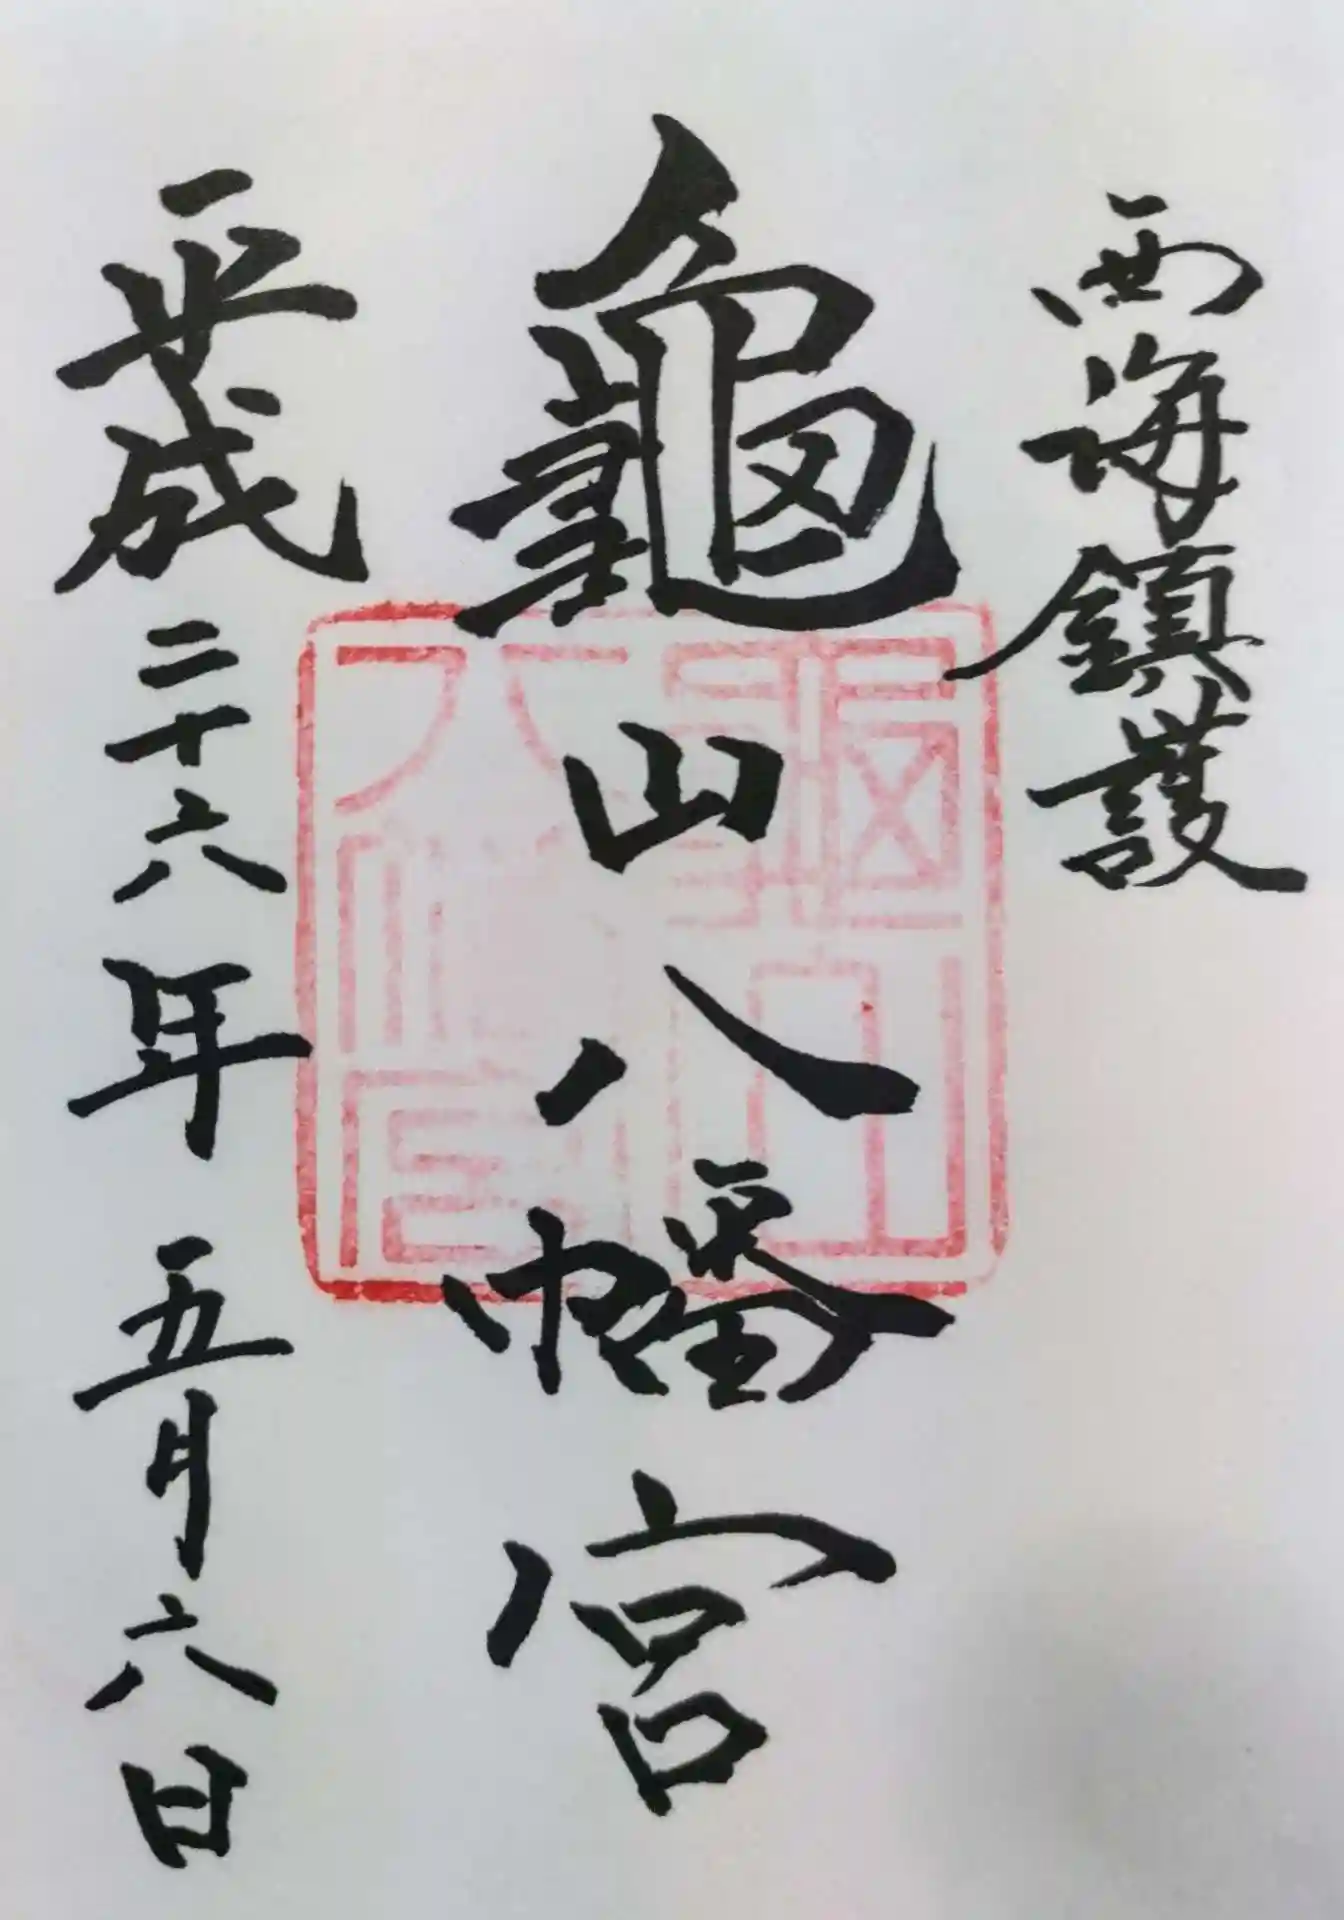 西海鎮護
龜山八幡宮
平成二十六年五月六日
龜山八幡宮